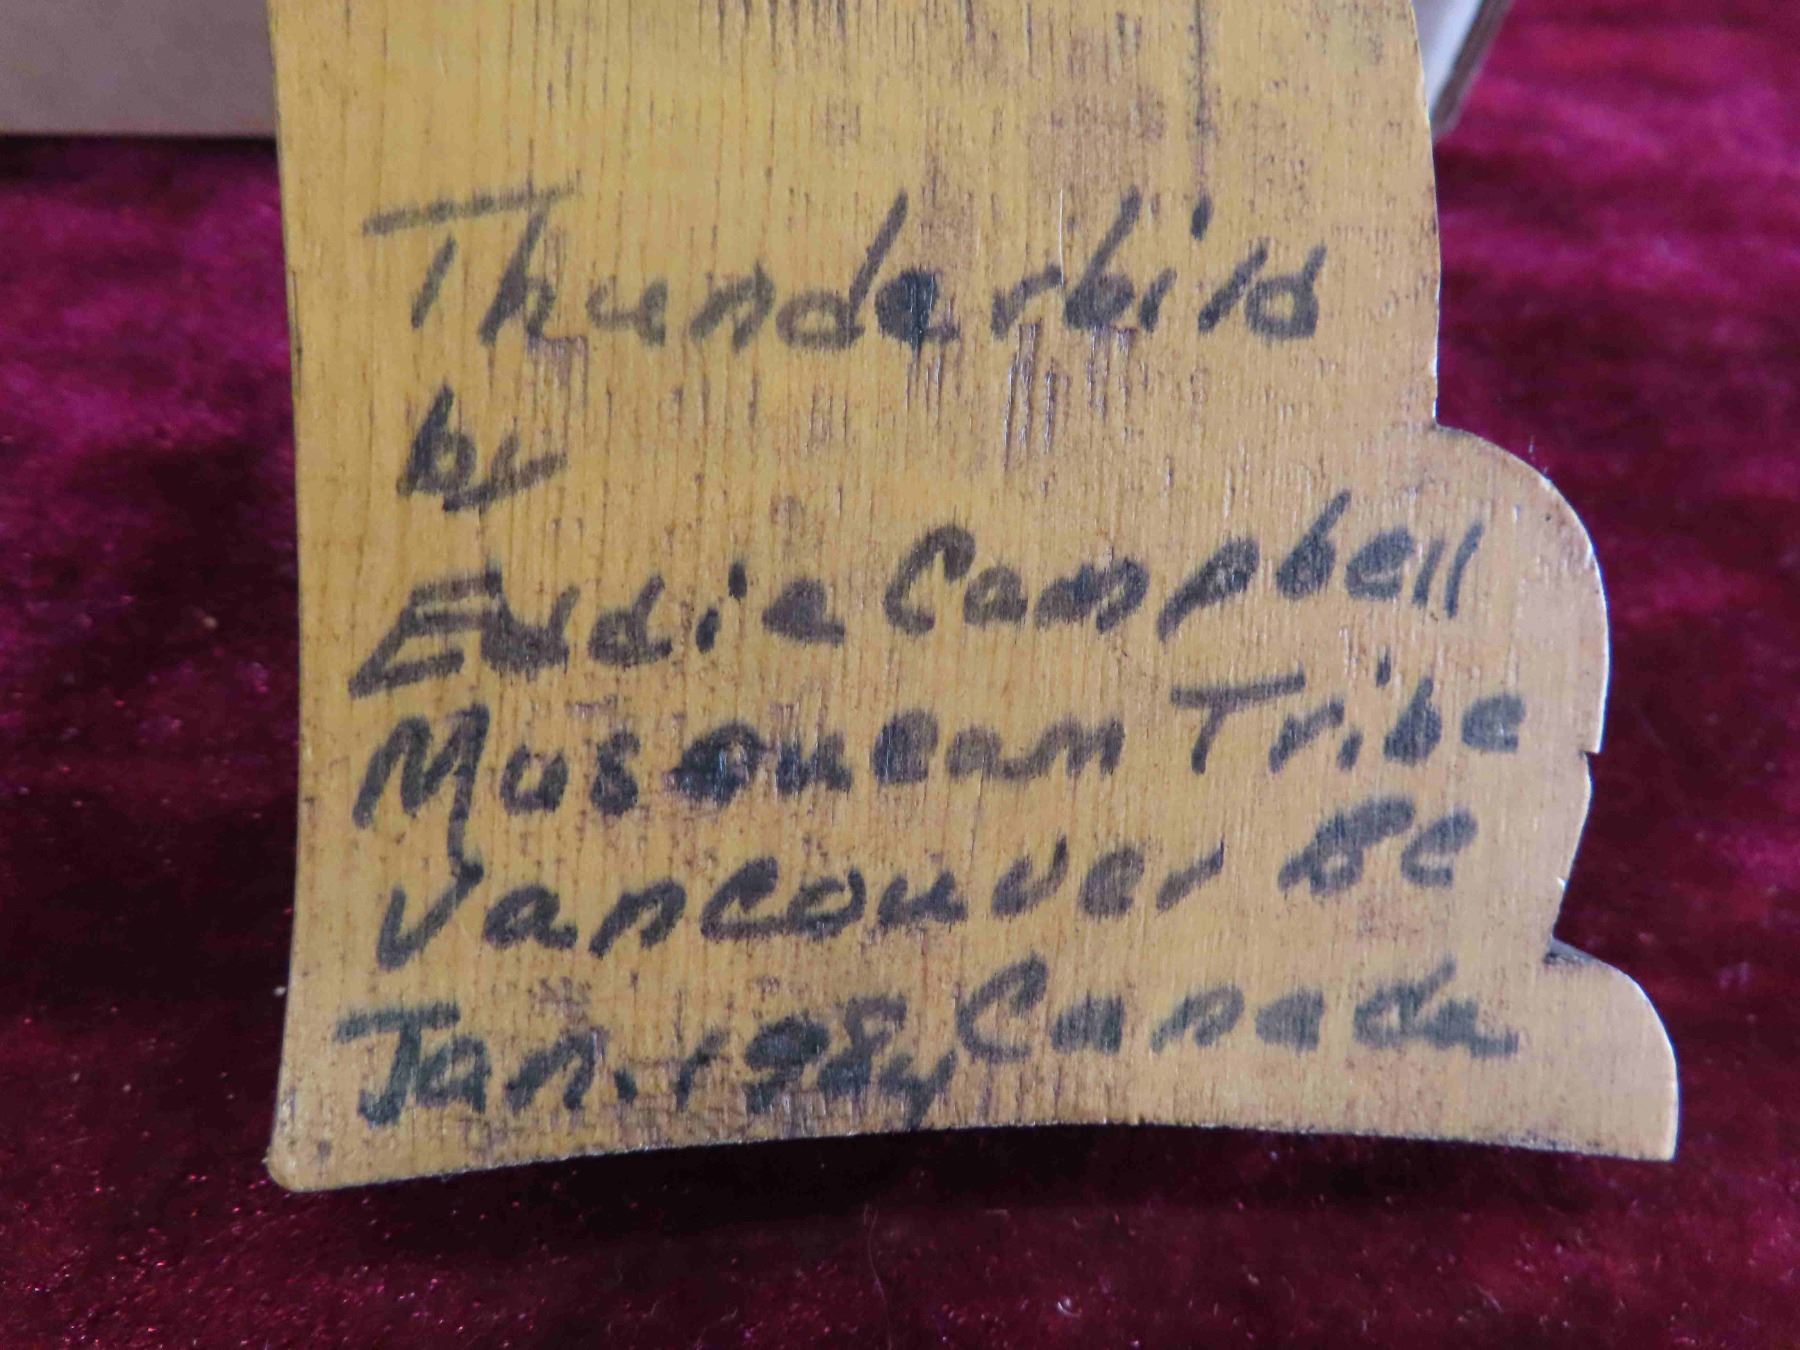 Thunderbird
by
Eddie Campbell
Musquean Tribe
Vancouver BC
Jan. 1984 Canada